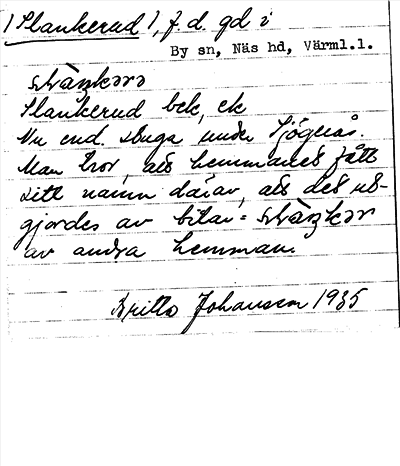 / Plankerud /, f. d. gd i
By sn, Näs hd, Värml.l.
Plankerud bek, ek
Nu end. stuga under Sjögerås.
Man tror, att hemmanet fått
sitt namn därav, att det ut-
gjordes av bitar =
av andra hemman.
Britta Johansson 1935